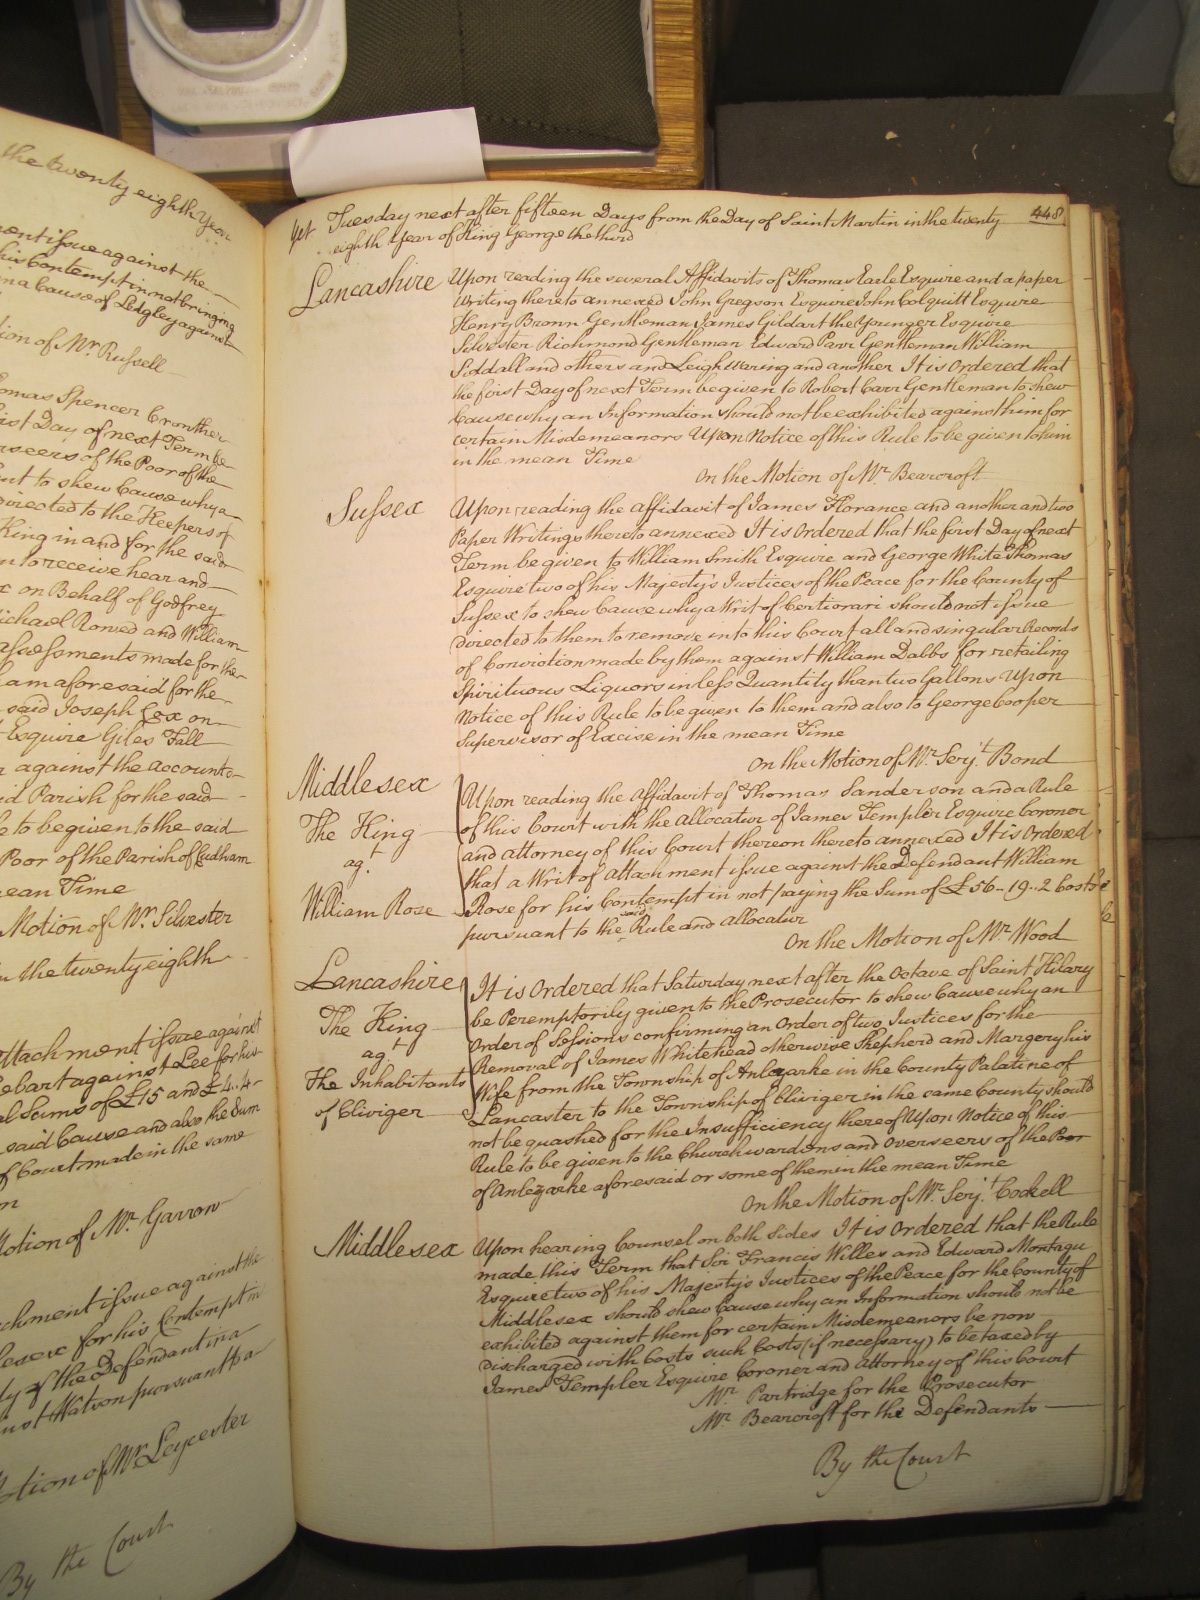 the twenty eighth Year
ment issue against the
his Contempt in not bringing
in a Cause of Ledgley against
tion of Mr. Russell
omas Spencer Crowther
irst Day of next Term be
rseers of the Poor of the
nt to shew Cause why a
directed to the Keepers of
King in and for the said
m to receive hear and
x on Behalf of Godfrey
ichael Rowed and William
assessments made for the
ham aforesaid for the
said Joseph Cox on
Esquire Giles Fall
r against the accounts
id Parish for the said
le to be given to the said
Poor of the Parish of Cudham
mean Time
Motion of Mr. Silvester
in the twenty eighth
ttachment issue against
ebart against Lee for his
al Sums of £15 and £4..4
said Cause and also the Sum
f Court made in the same
m
Motion of Mr. Garrow
achment issue against the
lesex for his Contempt in
dy of the Defendant in a
inst Watson pursuant to a
otion of Mr. Leycester
By the Court
Yet Tuesday next after fifteen Days from the Day of Saint Martin in the twenty 448
eighth Year of King George the third
Lancashire Upon reading the several Affidavits of Thomas Earle Esquire and a paper
writing thereto annexed John Gregson Esquire John Colquitt Esquire
Henry Brown Gentleman James Gildart the Younger Esquire
Silvester Richmond Gentleman Edward Parr Gentleman William
Siddall and others and Leigh Waring and another It is Ordered that
the first Day of next Term be given to Robert Carr Gentleman to shew
Cause why an Information should not be exhibited against him for
certain Misdemeanors Upon Notice of this Rule to be given to him
in the mean Time
On the Motion of Mr. Bearcroft
Sussex Upon reading the affidavit of James Florance and another and two
Paper Writings thereto annexed It is Ordered that the first Day of next
Term be given to William Smith Esquire and George White Thomas
Esquire two of his Majesty's Justices of the Peace for the County of
Sussex to shew Cause why a Writ of Certiorari should not issue
directed to them to remove into this Court all and singular Records
of Conviction made by them against William Dabbs for retailing
Spirituous Liquors in less Quantity than two Gallons Upon
Notice of this Rule to be given to them and also to George Cooper
Supervisor of Excise in the mean Time
On the Motion of Mr. Serjt. Bond
Middlesex Upon reading the Affidavit of Thomas Sanderson and a Rule
The King of this Court with the Allocatur of James Templer Esquire Coroner
agt. and attorney of this Court thereon thereto annexed It is Ordered
that a Writ of Attachment issue against the Defendant William
William Rose Rose for his Contempt in not paying the Sum of £56-19..2 Costs
pursuant to the said Rule and allocatur
On the Motion of Mr. Wood
Lancashire It is Ordered that Saturday next after the Octave of Saint Hilary
The King be Peremptorily given to the Prosecutor to shew Cause why an
agt. Order of Sessions confirming an Order of two Justices for the
Removal of James Whitehead otherwise Shepherd and Margery his
The Inhabitants Wife from the Township of Anlezarke in the County Palatine of
of Cliviger Lancaster to the Township of Cliviger in the same County should
not be quashed for the Insufficiency thereof Upon Notice of this
Rule to be given to the Churchwardens and Overseers of the Poor
of Anlezarke aforesaid or some of them in the mean Time
On the Motion of Mr. Serjt. Cockell
Middlesex Upon hearing Counsel on both Sides It is Ordered that the Rule
made this Term that Sir Francis Willes and Edward Montagu
Esquire two of his Majesty's Justices of the Peace for the County of
Middlesex should shew Cause why an Information should not be
exhibited against them for certain Misdemeanors be now
discharged with Costs such Costs (if necessary) to be taxed by
James Templer Esquire Coroner and Attorney of this Court
Mr. Partridge for the Prosecutor
Mr. Bearcroft for the Defendants
By the Court